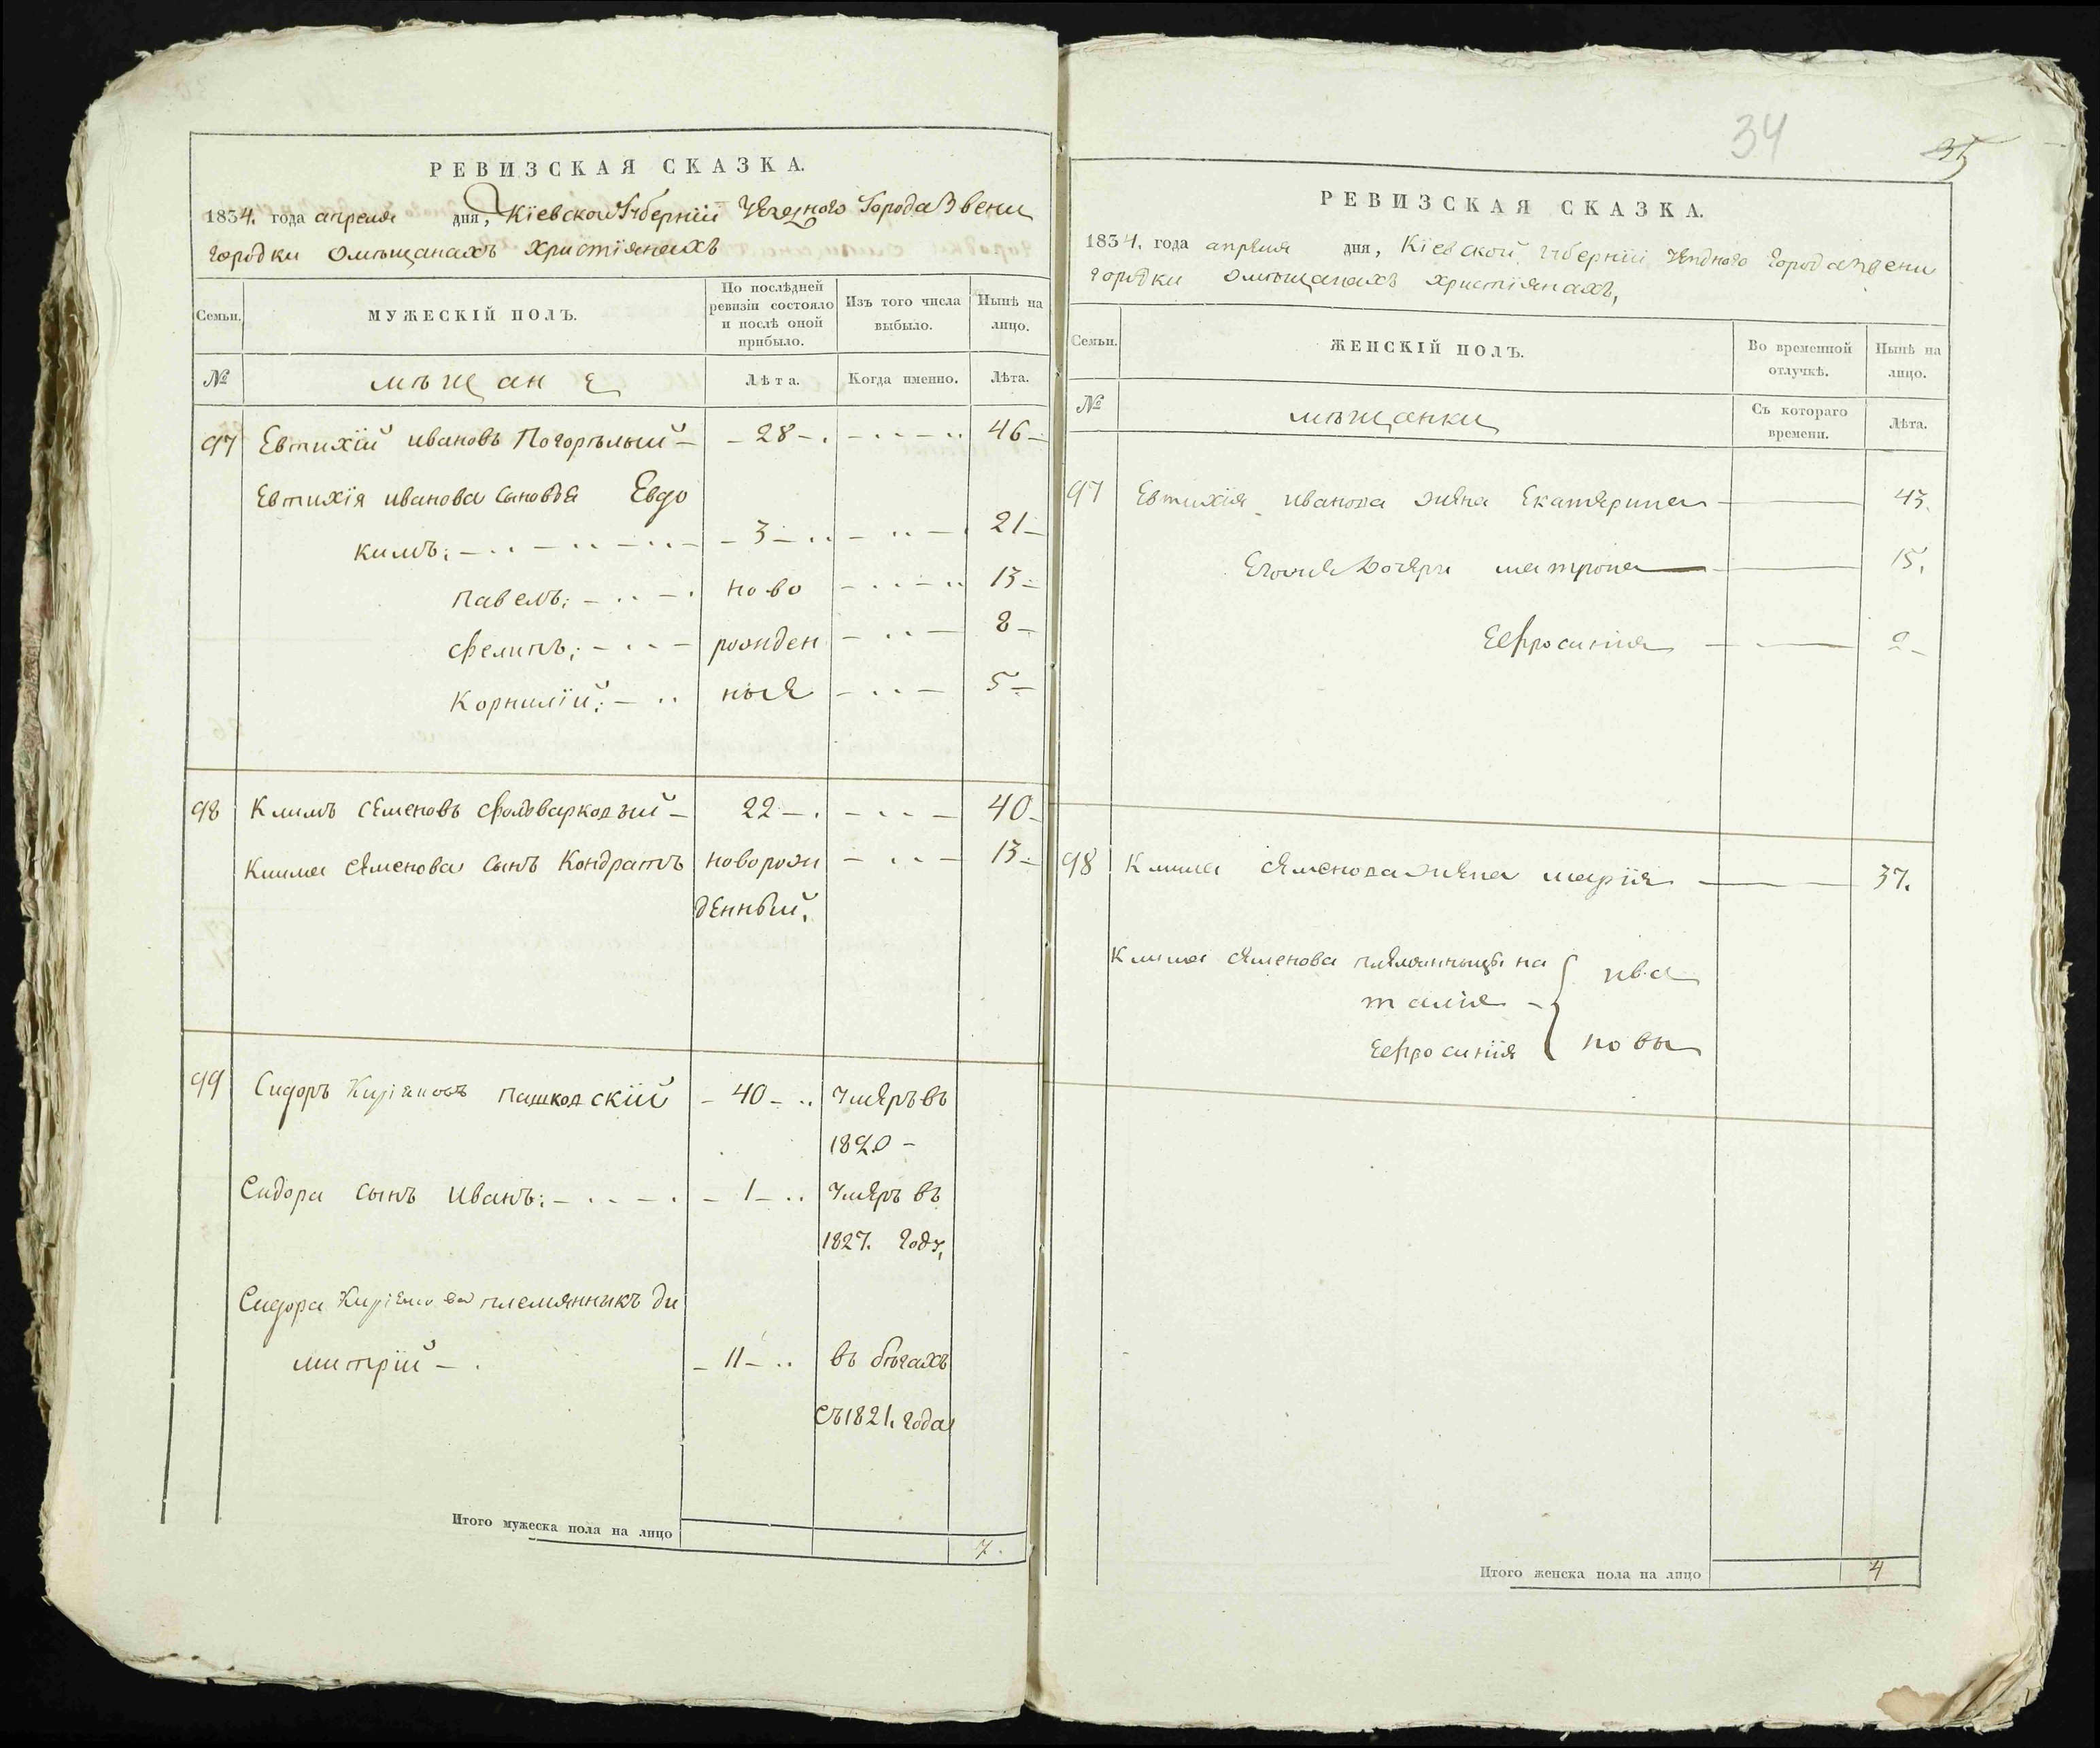 РЕВИЗСКАЯ СКАЗКА.
1834. года апреля дня, Кіевской Губерніи Уезднаго Города Звени
городки омѣщанахъ христіянахъ
Семьи. МУЖЕСКІЙ ПОЛЪ. По послѣдней ревизіи состояло и послѣ оной прибыло. Изъ того числа выбыло. Нынѣ на лицо.
№ мѣщане Лѣта. Когда именно. Лѣта.
97 Евтихій ивановъ Погорѣлый – – 28 – . 46 –
Евтихія иванова сыновья Евдо
кимъ; – 3 – 21 –
павелъ; ново 13 –
Фелипъ; рожден 8 –
Корнилій; ныя 5 –
98 Климъ семеновъ Фольварко 22 – . 40 –
Клима семенова сынъ Кондратъ новорож 13 –
денный.
99 Сидоръ Киріяновъ пашковскій – 40 – умеръ въ
1820 –
Сидора сынъ Иванъ; – 1 – умеръ въ
1827. году,
Сидора Киріянова племянникъ ди
митрій – – 11 – въ бѣгахъ
съ 1821. года
Итого мужеска пола на лицо 7.
34
35
РЕВИЗСКАЯ СКАЗКА.
1834. года апреля дня, Кіевской Губерніи Уездного Города Звени
городки омѣщанахъ христіянахъ,
Семьи. ЖЕНСКІЙ ПОЛЪ. Во временной отлучкѣ. Нынѣ на лицо.
№ мѣщанки Съ котораго времени. Лѣта.
97 Евтихія иванова жена Екатерина 43.
Егоже дочери матрона 15.
Ефросинія 2 –
98 Клима семенова жена марія 37.
Клима семенова племянницы на ива
талія –
Ефросинія новы
Итого женска пола на лицо 4